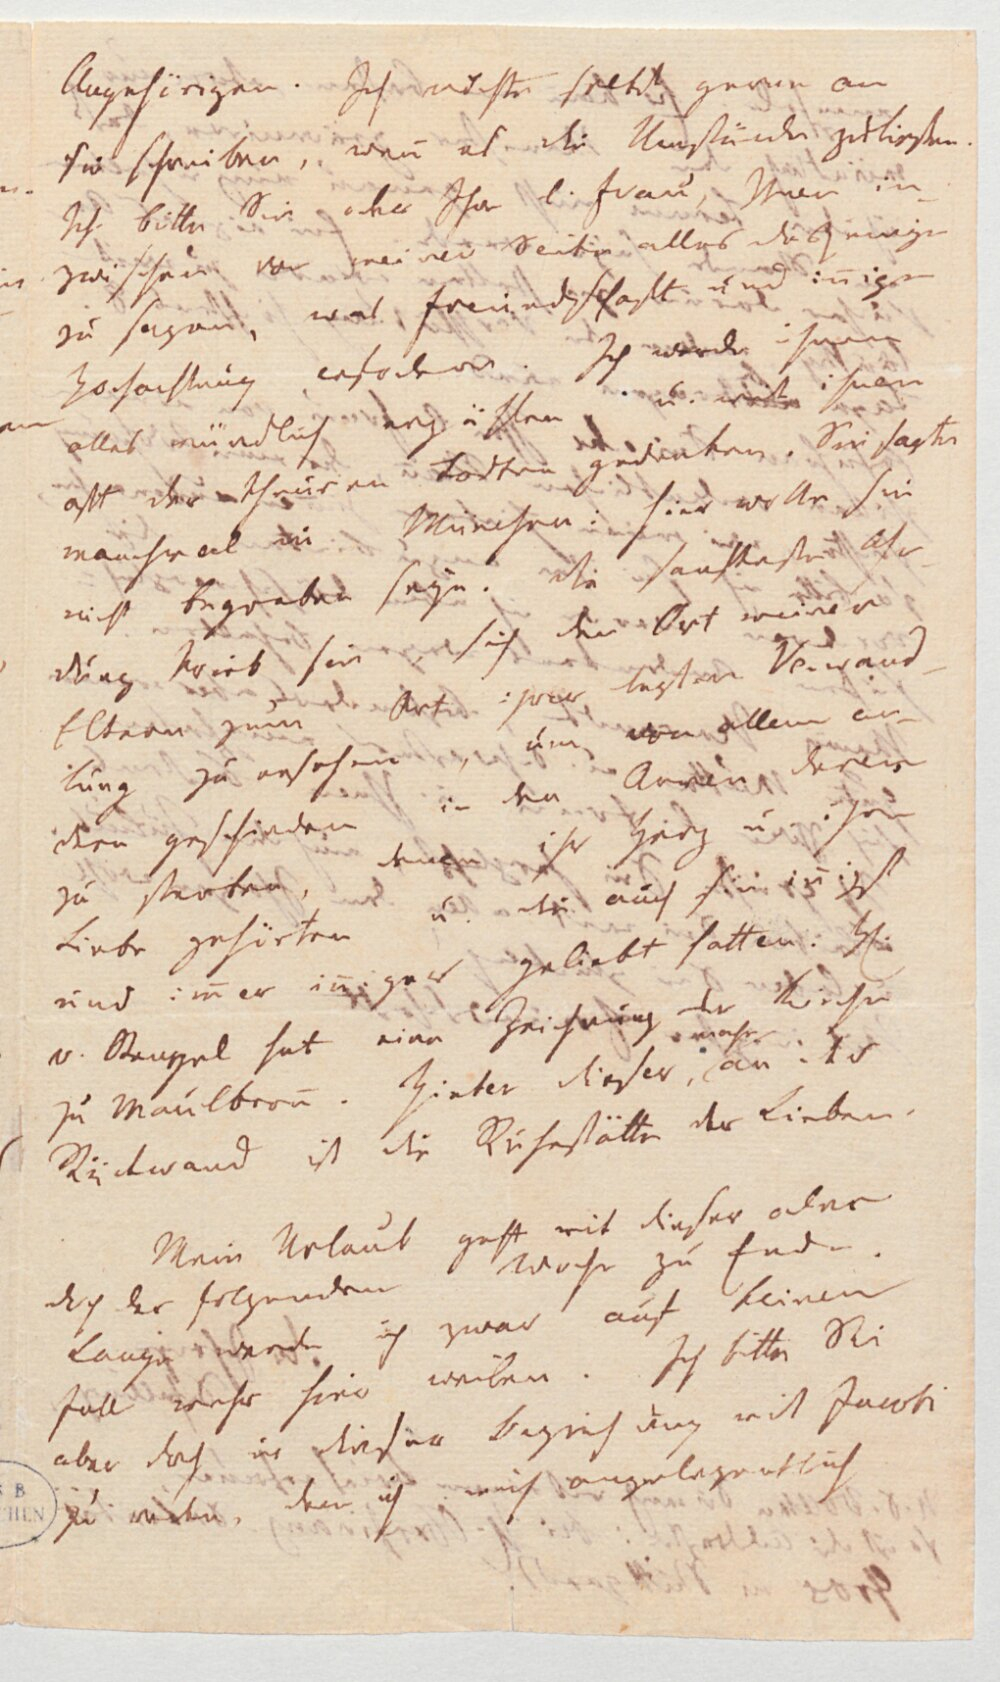 Angehörigen. Ich möchte selbst gerne an
sie schreiben, wen̄ es die Umstände zuließen.
Ich bitte Sie oder Ihre l. Frau, Ihnen in-
zwischen von meiner Seite alles dasjenige
zu sagen, was Freundschaft und in̄ige
Hochachtung erfodern. Ich werde ihnen
alles mündlich erzählen u. mit ihnen
oft der theuren Todten gedenken. Sie sagte
manchmal in München: hier wolle sie
nicht begraben seyn. Die sanfteste Ah-
dung trieb sie, sich den Ort meiner
Eltern zum Ort ihrer letzten Verwand-
lung zu ersehen, um von allem an-
dern geschieden in den Armen derer
zu sterben, denen ihr Herz u. ihre
Liebe gehörten u. die auch sie in̄igst
und im̄er in̄iger geliebt hatten. H.
v. Stengel hat eine Zeichnung der Kirche
zu Maulbron̄. Hinter dieser, nahe an ihrer
Rückwand ist die Ruhestätte der Lieben.
Mein Urlaub geht mit dieser oder
doch der folgenden Woche zu Ende.
Lange werde ich zwar auf keinen
Fall mehr hier weilen. Ich bitte Sie
aber doch in dieser Beziehung mit Jacobi
zu reden, dem ich mich angelegentlich